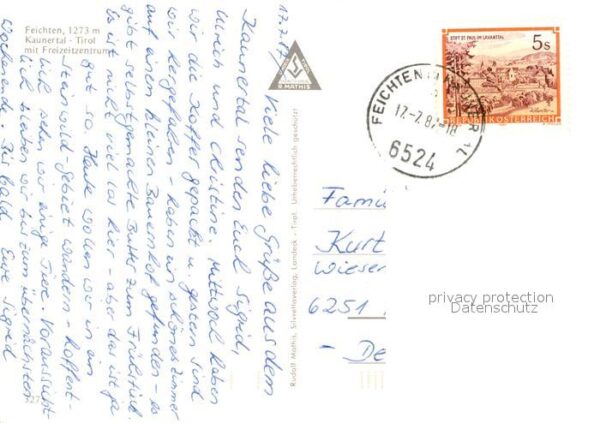 Feichten, 1273 m
Kaunertal - Tirol
mit Freizeitzentrum
17.7.87
Viele liebe Grüße aus dem
Kaunertal senden Euch Sigrid,
Ulrich und Christine. Mittwoch haben
wir die Koffer gepackt u. gestern sind
wir hergefahren - haben ein schönes Zimmer
auf einem kleinen Bauernhof gefunden - es
gibt selbstgemachte Butter zum Frühstück.
Es ist nicht viel los hier - aber das ist ja
gut so. Heute wollen wir in ein
Steinwild-Gebiet wandern - hoffent-
lich sehen wir einige Tiere. Voraussicht-
lich bleiben wir bis zum übernächsten
Wochenende. Bis bald Eure Sigrid
R. MATHIS
Rudolf Mathis, Silvrettaverlag, Landeck - Tirol. Urheberrechtlich geschützt
STIFT ST. PAUL IM LAVANTTAL
5s
REPUBLIK ÖSTERREICH
FEICHTEN
17.-7.87-18
6524
Famil
Kurt
Wieser
6251
- De
privacy protection
Datenschutz